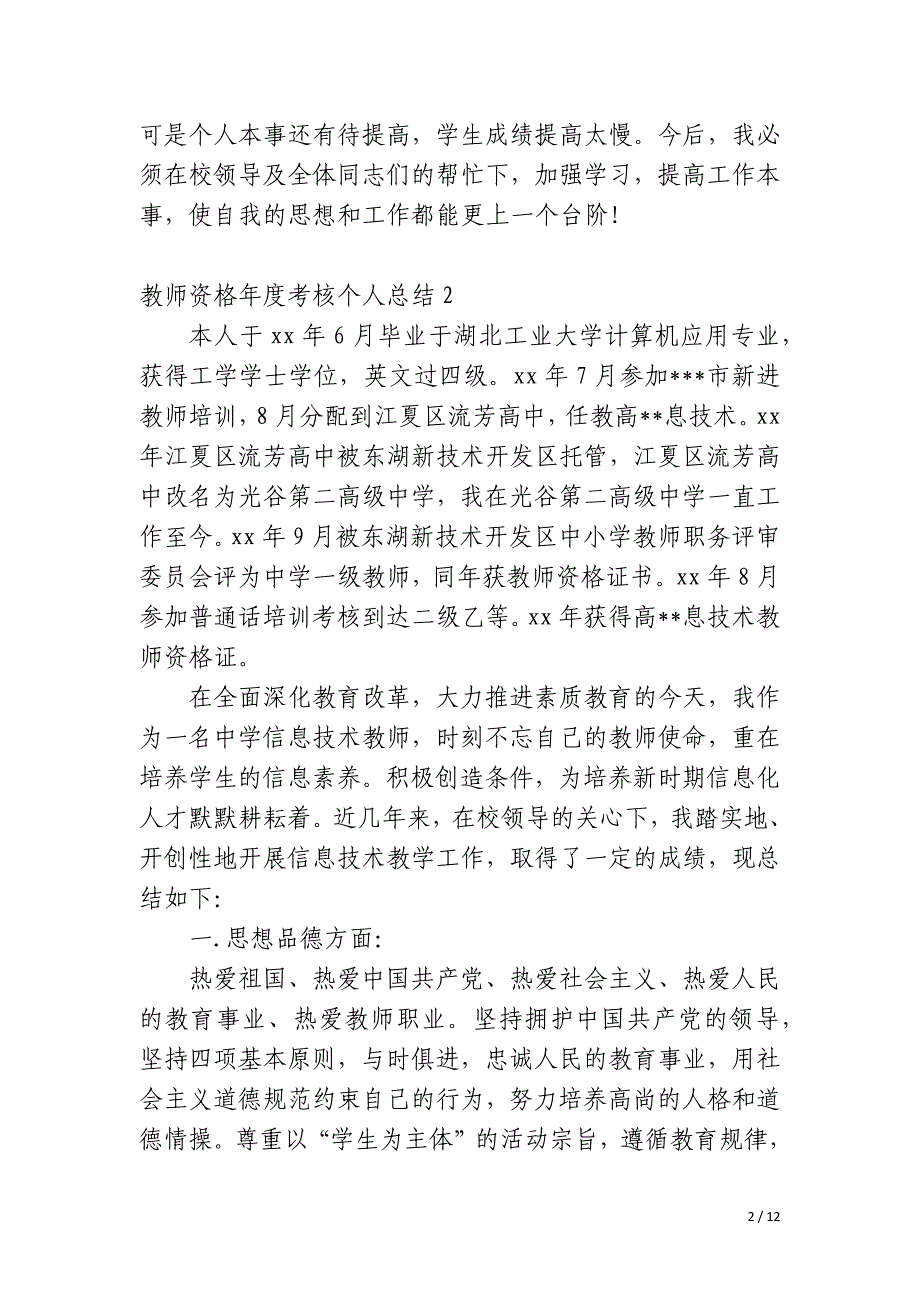 可是个人本事还有待提高，学生成绩提高太慢。今后，我必
须在校领导及全体同志们的帮忙下，加强学习，提高工作本
事，使自我的思想和工作都能更上一个台阶！
教师资格年度考核个人总结2
本人于xx年6月毕业于湖北工业大学计算机应用专业，
获得工学学士学位，英文过四级。xx年7月参加***市新进
教师培训，8月分配到江夏区流芳高中，任教高**息技术。xx
年江夏区流芳高中被东湖新技术开发区托管，江夏区流芳高
中改名为光谷第二高级中学，我在光谷第二高级中学一直工
作至今。xx年9月被东湖新技术开发区中小学教师职务评审
委员会评为中学一级教师，同年获教师资格证书。xx年8月
参加普通话培训考核到达二级乙等。xx年获得高**息技术教
师资格证。
在全面深化教育改革，大力推进素质教育的今天，我作
为一名中学信息技术教师，时刻不忘自己的教师使命，重在
培养学生的信息素养。积极创造条件，为培养新时期信息化
人才默默耕耘着。近几年来，在校领导的关心下，我踏实地、
开创性地开展信息技术教学工作，取得了一定的成绩，现总
结如下：
一.思想品德方面：
热爱祖国、热爱中国共产党、热爱社会主义、热爱人民
的教育事业、热爱教师职业。坚持拥护中国共产党的领导，
坚持四项基本原则，与时俱进，忠诚人民的教育事业，用社
会主义道德规范约束自己的行为，努力培养高尚的人格和道
德情操。尊重以“学生为主体”的活动宗旨，遵循教育规律，
2 / 12